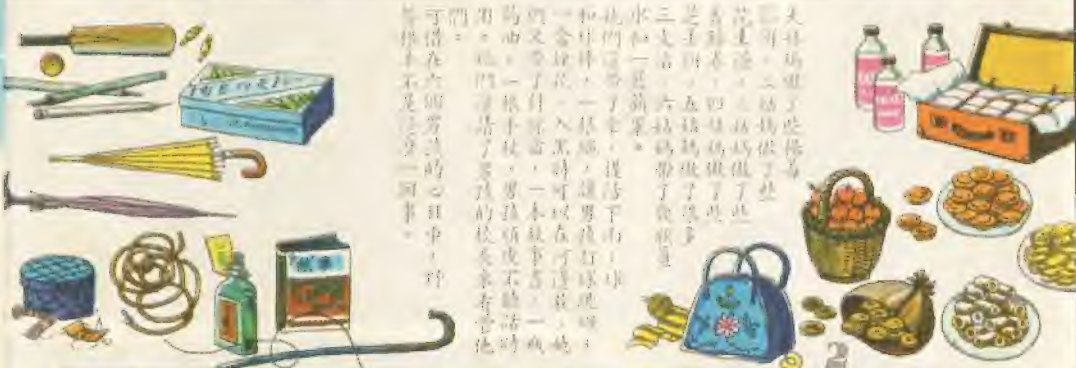 大姑媽做了些
二姑媽做了些
花生　，三姑媽做了些
四姑媽做了些
芝麻餅，五姑媽做了許多
三文治，六姑媽帶了幾瓶汽
水和一籃蘋果。
她們還帶了傘，提防下雨；球
和球棒，一根繩，讓男孩打球跳繩；
一盒煙花，入黑時可以在河邊放。她
們又帶了針線盒，一本故事書，一瓶
油，一根手杖，男孩頑皮不聽話時
用。她們還請了男孩的校長來看管他
們。
可惜在六個男孩的心目中，野
餐根本不是這麼一回事。